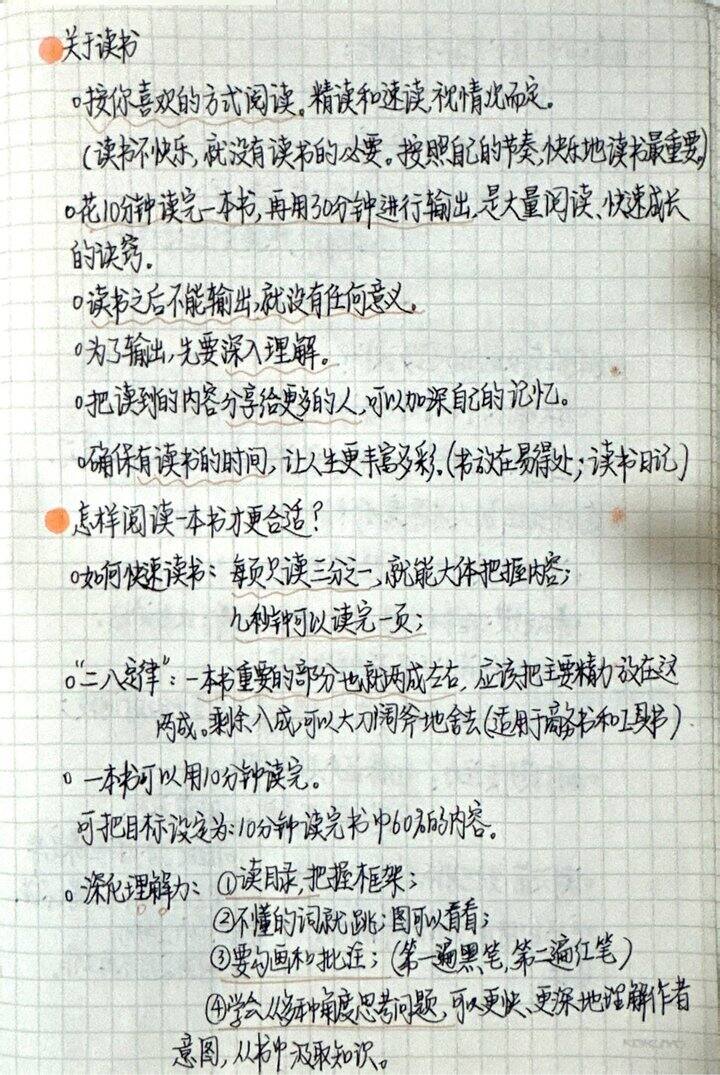 关于读书
按你喜欢的方式阅读。精读和速读，视情况而定。
（读书不快乐，就没有读书的必要。按照自己的节奏，快乐地读书最重要）
花10分钟读完一本书，再用30分钟进行输出，是大量阅读、快速成长
的诀窍。
读书之后不能输出，就没有任何意义。
为了输出，先要深入理解。
把读到的内容分享给更多的人，可以加深自己的记忆。
确保有读书的时间，让人生更丰富多彩。（书放在易得处；读书日记）
怎样阅读一本书才更合适？
如何快速读书：每页只读三分之一，就能大体把握内容；
几秒钟可以读完一页；
“二八定律”：一本书重要的部分也就两成左右，应该把主要精力放在这
两成。剩余八成，可以大刀阔斧地舍去（适用于商务书和工具书）
一本书可以用10分钟读完。
可把目标设定为：10分钟读完书中60%的内容。
深化理解力：①读目录，把握框架；
②不懂的词就跳；图可以看看；
③要勾画和批注；（第一遍黑笔，第二遍红笔）
④学会从多种角度思考问题，可以更快、更深地理解作者
意图，从书中汲取知识。
KOKUYO